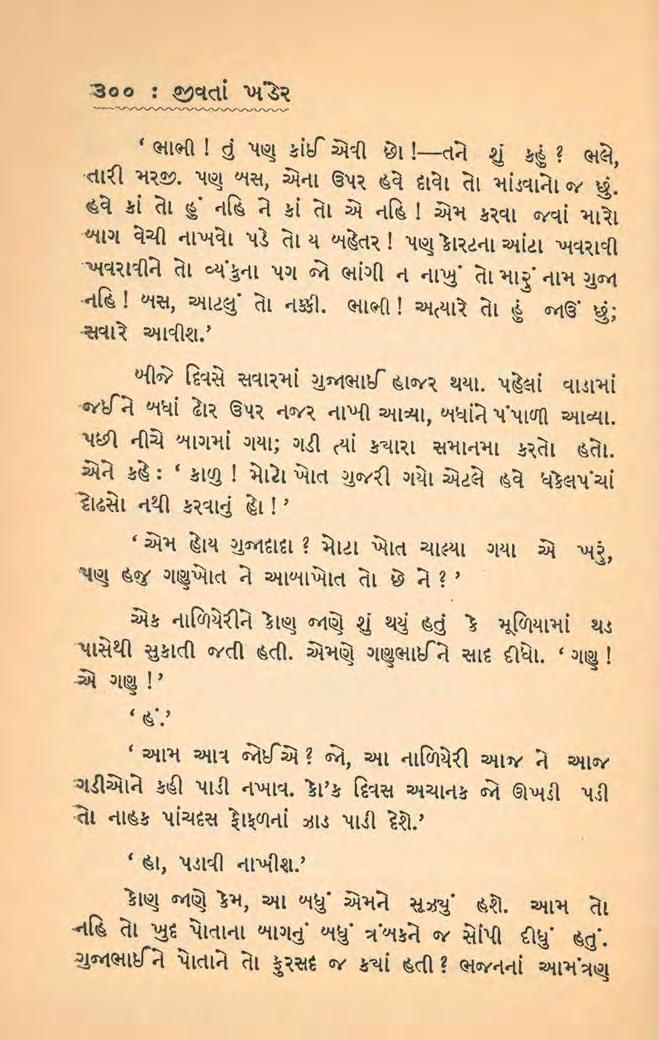 ૩૦૦ : જીવતાં ખંડેર
‘ ભાભી ! તું પણ કાંઈ એવી છો !—તને શું કહું ? ભલે,
તારી મરજી. પણ બસ, એના ઉપર હવે દાવો તો માંડવાનો જ છું.
હવે કાં તો હું નહિ ને કાં તો એ નહિ ! એમ કરવા જવાં મારો
બાગ વેચી નાખવો પડે તો ય બહેતર ! પણ કોરટના આંટા ખવરાવી
ખવરાવીને તો વ્યંકુના પગ જો ભાંગી ન નાખું તો મારૂં નામ ગુજા
નહિ ! બસ, આટલું તો નક્કી. ભાભી ! અત્યારે તો હું જાઉં છું;
સવારે આવીશ.’
બીજે દિવસે સવારમાં ગુજાભાઈ હાજર થયા. પહેલાં વાડામાં
જઈને બધાં ઢોર ઉપર નજર નાખી આવ્યા, બધાંને પંપાળી આવ્યા.
પછી નીચે બાગમાં ગયા; ગડી ત્યાં ક્યારા સમાનમા કરતો હતો.
એને કહે : ‘ કાળુ ! મોટો ખોત ગુજરી ગયો એટલે હવે ધકેલપંચાં
દોઢસો નથી કરવાનું હો ! ’
‘ એમ હોય ગુજાદાદા ? મોટા ખોત ચાલ્યા ગયા એ ખરૂં,
પણ હજુ ગણુખોત ને આબાખોત તો છે ને ? ’
એક નાળિયેરીને કોણ જાણે શું થયું હતું કે મૂળિયામાં થડ
પાસેથી સુકાતી જતી હતી. એમણે ગણુભાઈને સાદ દીધો. ‘ ગણુ !
એ ગણુ ! ’
‘ હં.’
‘ આમ આવ જોઈએ ? જો, આ નાળિયેરી આજ ને આજ
ગડીઓને કહી પાડી નખાવ. કો’ક દિવસ અચાનક જો ઊખડી પડી
તો નાહક પાંચદસ ફોફળનાં ઝાડ પાડી દેશે.’
‘ હા, પડાવી નાખીશ.’
કોણ જાણે કેમ, આ બધું એમને સૂઝયું હશે. આમ તો
નહિ તો ખુદ પોતાના બાગનું બધું ત્રંબકને જ સોંપી દીધું હતું.
ગુજાભાઈને પોતાને તો ફુરસદ જ ક્યાં હતી ? ભજનનાં આમંત્રણ